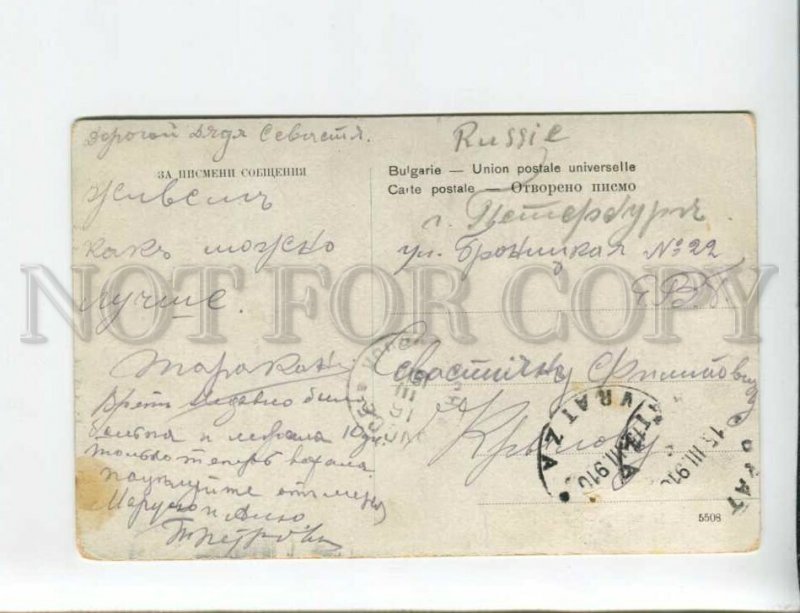 дорогой дядя Севастя.
ЗА ПИСМЕНИ СОБЩЕНИЯ
Живемъ
какъ можно
лучше.
Таракан
Врет недавно была
больна и лежала 10 дн.
только теперь
поцелуйте от меня
Марусю и Аню
Петров
Russie
Bulgarie — Union postale universelle
Carte postale — Отворено писмо
г. Петербургъ.
ул. Броницкая № 22
ЕВБ
Севастіяну Филипповичу
Крылову
VRATZA
5508
NOT FOR COPY